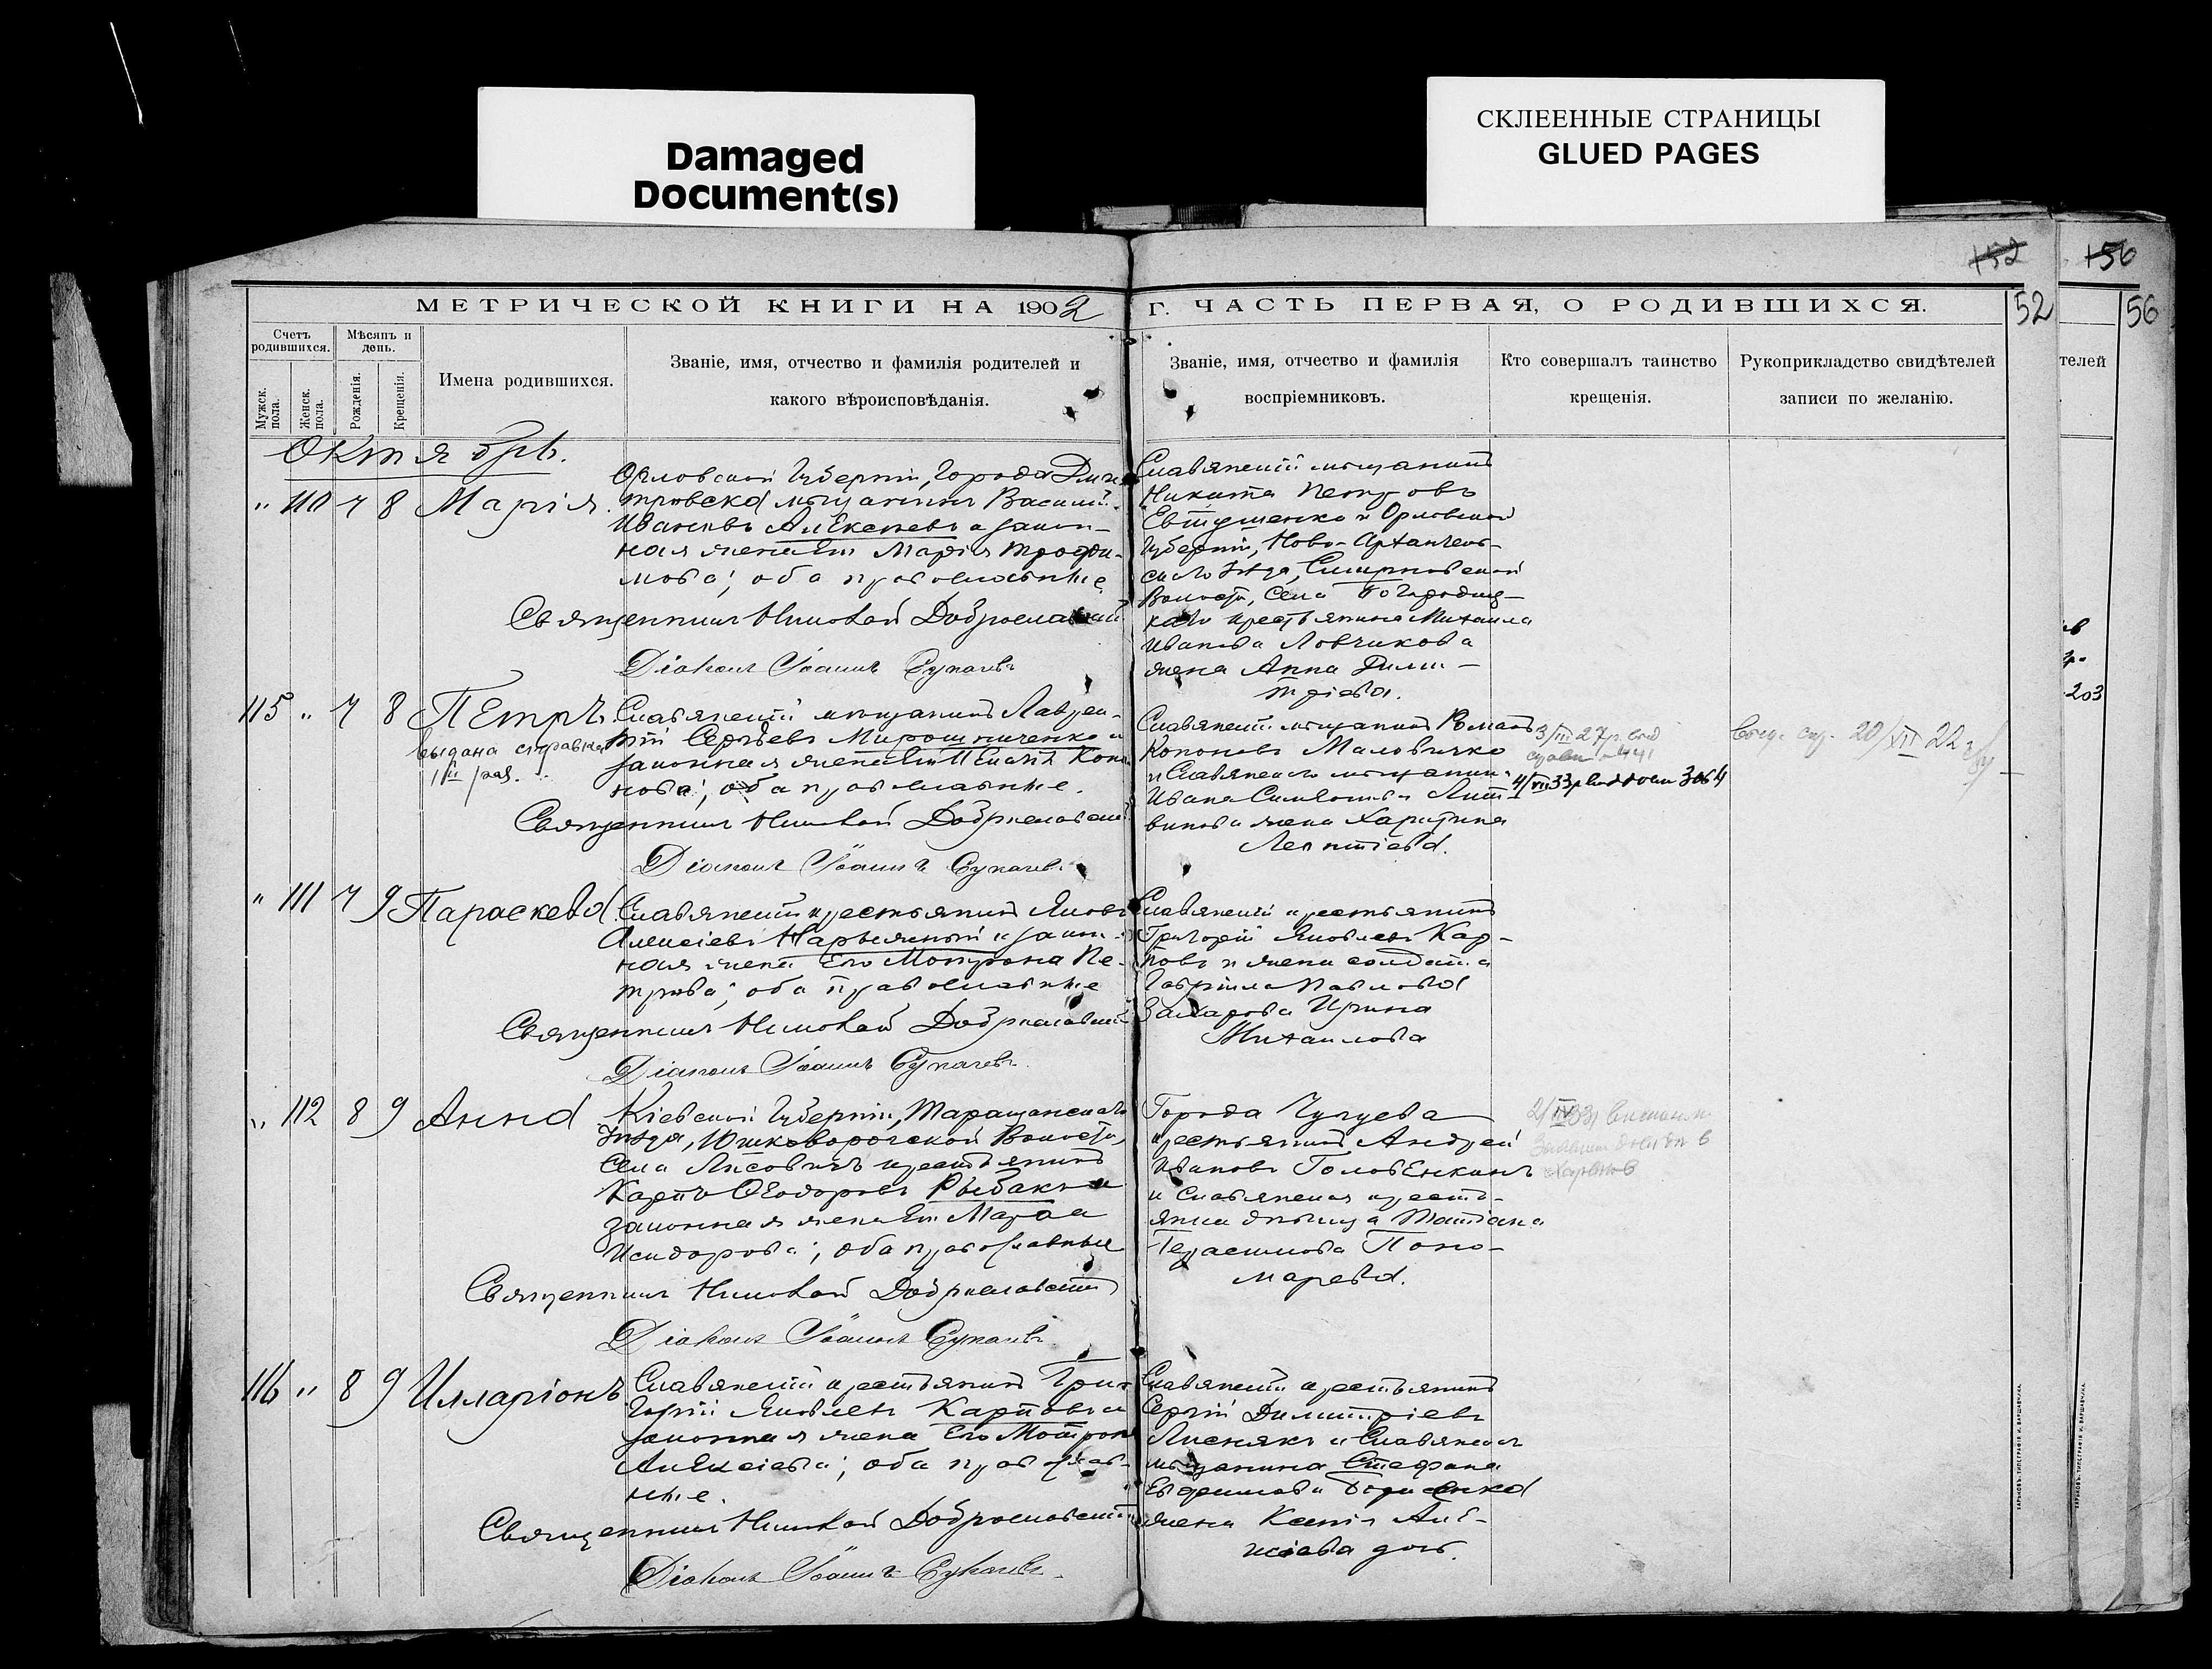 Damaged
Document(s)
СКЛЕЕННЫЕ СТРАНИЦЫ
GLUED PAGES
152
156
МЕТРИЧЕСКОЙ КНИГИ НА 1902 Г. ЧАСТЬ ПЕРВАЯ, О РОДИВШИХСЯ.
52
56
Счетъ родившихся.
Мужск. пола.
Женск. пола.
Мѣсяцъ и день.
Рожденія.
Крещенія.
Имена родившихся.
Званіе, имя, отчество и фамилія родителей и
какого вѣроисповѣданія.
Званіе, имя, отчество и фамилія
воспріемниковъ.
Кто совершалъ таинство
крещенія.
Рукоприкладство свидѣтелей
записи по желанію.
телей
Октябрь.
" 110 7 8 Марія.
Орловской Губерніи, Города Дми-
тровска мѣщанинъ Василій
Ивановъ Алексѣевъ и закон-
ная жена его Марія Трофи-
мова; оба православные
Священникъ Николай Доброславскій
Діаконъ Іоаннъ Сукачевъ
Славянскій мѣщанинъ
Никита Петровъ
Евтушенко и Орловской
Губерніи, Ново-Архангель-
скаго уѣзда,
Волости, Села Богородиц-
каго крестьянина Михаила
Иванова Ловчикова
жена Анна Дими-
тріева.
115 " 7 8 Петръ.
выдана справка
Славянскій мѣщанинъ Лаврен-
тій Сергѣевъ Мирошниченко и
законная жена его Коно-
нова; оба православные.
Священникъ Николай Доброславскій
Діаконъ Іоаннъ Сукачевъ
Славянскій мѣщанинъ Романъ
Кононовъ Маловичко
и Славянскаго мѣщанина
Ивана Симеонова Лит-
винова жена Харитина
Леонтіева.
" 111 7 9 Параскева
Славянскій крестьянинъ Яковъ
Алексіевъ Нарыжный и закон-
ная жена его Мотрона Пе-
трова; оба православные
Священникъ Николай Доброславскій
Діаконъ Іоаннъ Сукачевъ
Славянскій крестьянинъ
Григорій Яковлевъ Кар-
повъ и жена солдата
Гавріила Павлова
Захарова Ирина
Михаилова
" 112 8 9 Анна
Кіевской Губерніи, Таращанскаго
Уѣзда, Волости,
Села Лѣсовичъ крестьянинъ
Карпъ Ѳеодоровъ Рыбакъ и
законная жена его Марѳа
Исидорова; оба православные
Священникъ Николай Доброславскій
Діаконъ Іоаннъ Сукачевъ
Города Чугуева
крестьянинъ Андрей
Ивановъ Головенкинъ
и Славянская кресть-
янка дѣвица Татіана
Герасимова Поно-
марева.
116 " 8 9 Илларіонъ
Славянскій крестьянинъ Гри-
горій Яковлевъ Карповъ и
законная жена его Мотрона
Алексіева; оба православ-
ные.
Священникъ Николай Доброславскій
Діаконъ Іоаннъ Сукачевъ
Славянскій крестьянинъ
Сергій Димитріевъ
Лиснякъ и Славянскаго
мѣщанина Стефана
Евфимова Борисенка
жена Ксенія Але-
ксіева дочь.